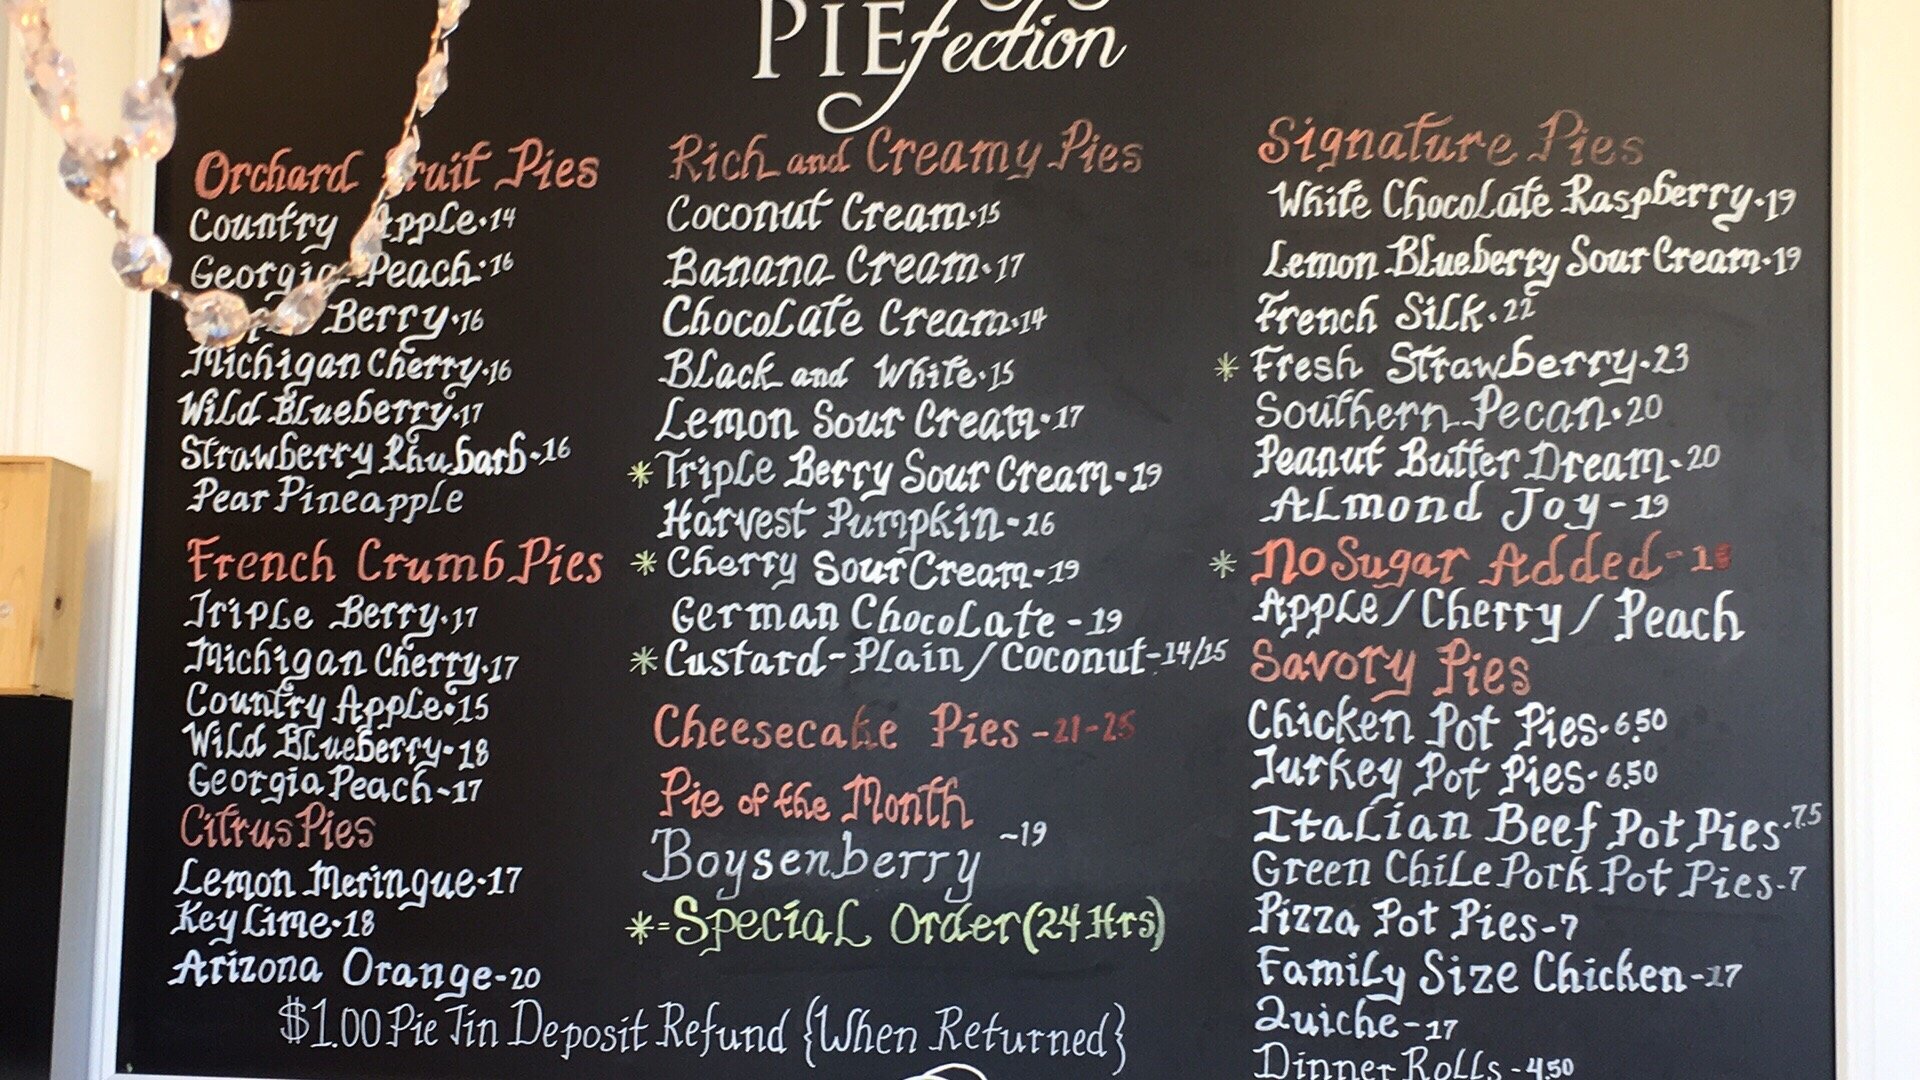 PIEfection
Orchard Fruit Pies
Country Apple·14
Georgia Peach·16
Berry·16
Michigan Cherry·16
Wild Blueberry·17
Strawberry Rhubarb·16
Pear Pineapple
French Crumb Pies
Triple Berry·17
Michigan Cherry·17
Country Apple·15
Wild Blueberry·18
Georgia Peach-17
Citrus Pies
Lemon Meringue·17
Key Lime·18
Arizona Orange-20
Rich and Creamy Pies
Coconut Cream·15
Banana Cream·17
Chocolate Cream·14
Black and White·15
Lemon Sour Cream·17
*Triple Berry Sour Cream·19
Harvest Pumpkin-16
*Cherry Sour Cream·19
German Chocolate-19
*Custard-Plain/Coconut-14/15
Cheesecake Pies-21-25
Pie of the Month
Boysenberry ~19
*=Special Order(24 Hrs)
Signature Pies
White Chocolate Raspberry·19
Lemon Blueberry Sour Cream·19
French Silk·22
*Fresh Strawberry·23
Southern Pecan·20
Peanut Butter Dream·20
Almond Joy-19
*No Sugar Added
Apple/Cherry/Peach
Savory Pies
Chicken Pot Pies·6.50
Turkey Pot Pies·6.50
Italian Beef Pot Pies·7.5
Green Chile Pork Pot Pies-7
Pizza Pot Pies-7
Family Size Chicken-17
Quiche-17
Dinner Rolls-4.50
$1.00 Pie Tin Deposit Refund {When Returned}